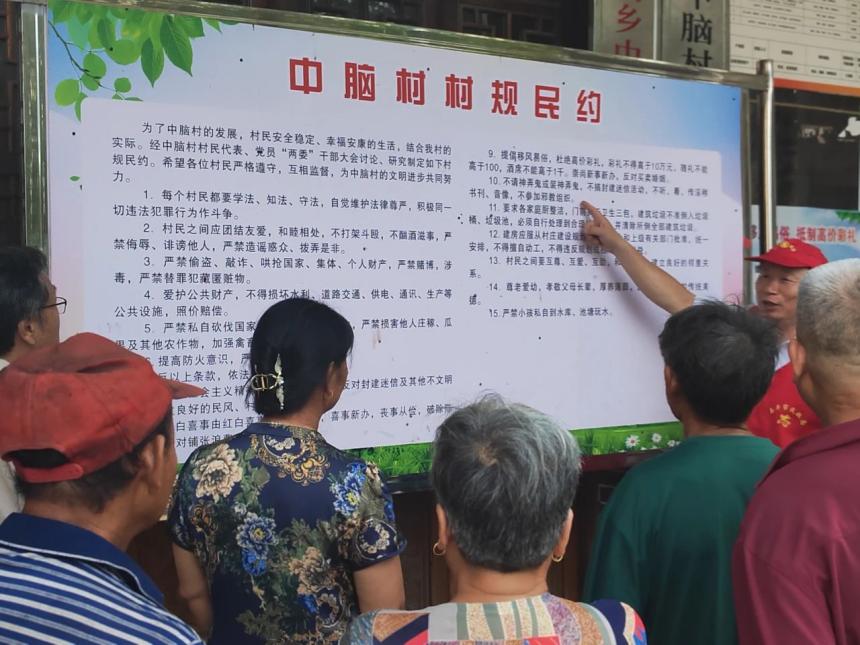 中脑村村规民约
为了中脑村的发展，村民安全稳定、幸福安康的生活，结合我村的
实际。经中脑村村民代表、党员“两委”干部大会讨论、研究制定如下村
规民约。希望各位村民严格遵守，互相监督，为中脑村的文明进步共同努
力。
1. 每个村民都要学法、知法、守法，自觉维护法律尊严，积极同一
切违法犯罪行为作斗争。
2. 村民之间应团结友爱，和睦相处，不打架斗殴，不酗酒滋事，严
禁侮辱、诽谤他人，严禁造谣惑众、拨弄是非。
3. 严禁偷盗、敲诈、哄抢国家、集体、个人财产，严禁赌博，涉
毒，严禁替罪犯藏匿赃物。
4. 爱护公共财产，不得损坏水利、道路交通、供电、通讯、生产等
公共设施，照价赔偿。
5. 严禁私自砍伐国家
，严禁损害他人庄稼、瓜
果及其他农作物，加强禽畜
6. 提高防火意识，严
反以上条款，依法
会主义精
反对封建迷信及其他不文明
良好的民风、
白喜事由红白喜
喜事新办，丧事从俭，破除
对铺张浪
9. 提倡移风易俗，杜绝高价彩礼，彩礼不得高于10万元，随礼不能
高于100，酒席不能高于1千。崇尚新事新办，反对买卖婚姻。
10. 不请神弄鬼或装神弄鬼，不搞封建迷信活动，不听、看、传淫秽
书刊、音像，不参加邪教组织。
11. 要求各家庭厨整洁，门
卫生三包，建筑垃圾不准倒入垃圾
桶、垃圾池，必须自行处理到合理
并清除所倒全部建筑垃圾。
12. 建房应服从村庄建设规
和上级有关部门批准，统一
安排，不得擅自动工，不得违反规划
13. 村民之间要互尊、互爱、互助，和
建立良好的邻里关
系。
14. 尊老爱幼，孝敬父母长辈，厚养薄葬
传统美
德。
15. 严禁小孩私自到水库、池塘玩水。
乡中
中脑村
俗 抵制高价彩礼